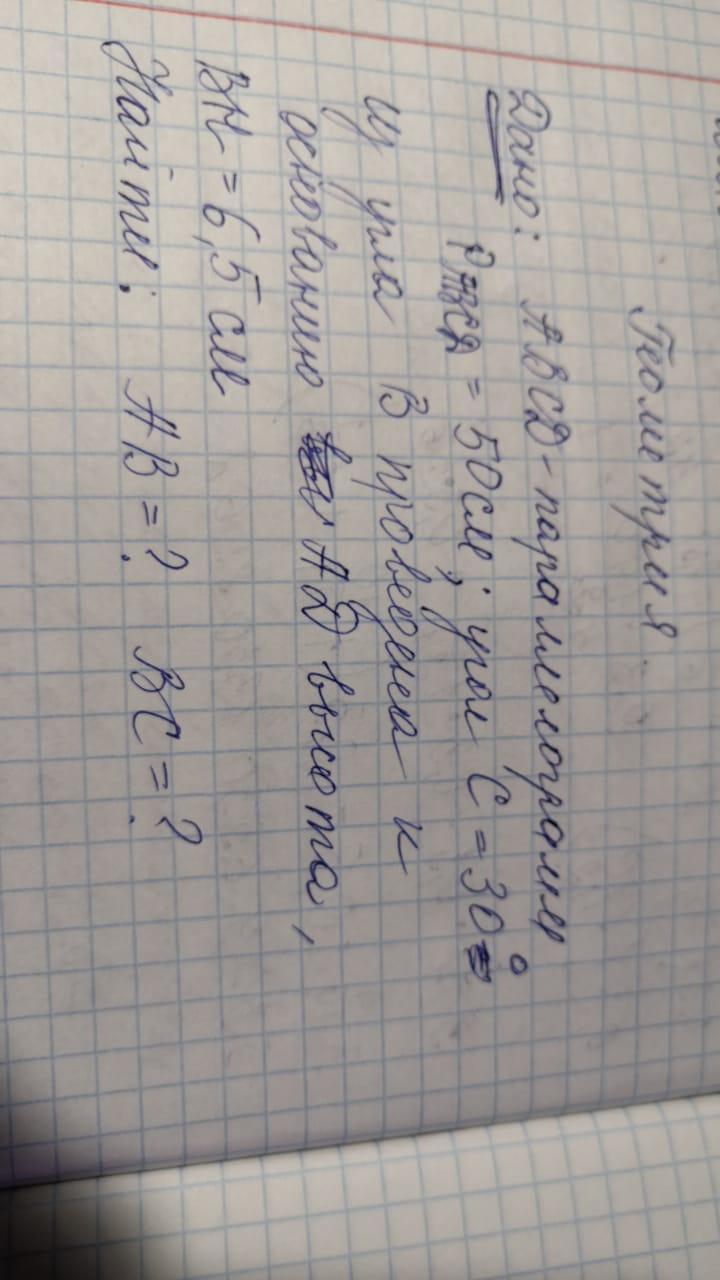 Геометрия.
Дано: АВСД - параллелограмм
РАВСД = 50см; угол С = 30°
Из угла В проведена к
основанию АД высота,
ВН = 6,5 см
Найти: АВ = ? ВС = ?